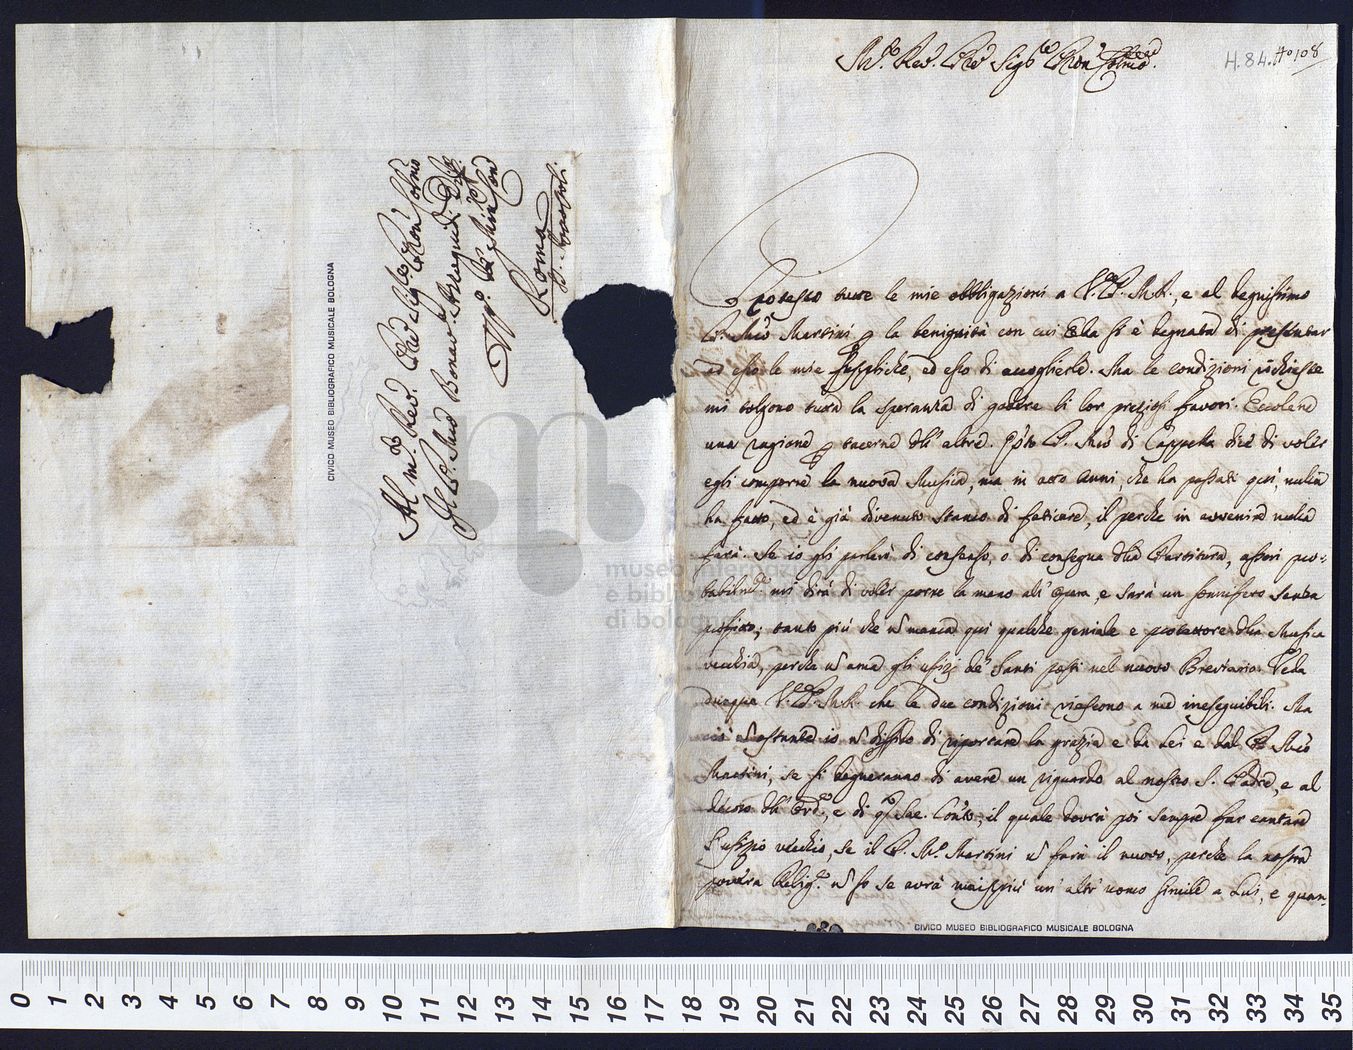 H.84. Ao 108
Protesto tutte le mie obbligazioni a V. P. M. R., e al degnissimo
P. Mro Martini p la benignità con cui Ella si è degnata di presentar
ad esso le mie suppliche, ed esso di accoglierle. Ma le condizioni richieste
mi tolgono tutta la speranza di godere li lor preziosi favori. Eccolene
una ragione p tacerne dll' altre. Qsto P. Mro di Cappella dice di voler
egli comporre la nuova Musica, ma in otto anni, che ha passati qui, nulla
ha fatto, ed è già divenuto stanco di faticare, il perche in avvenire nulla
farà. Se io gli parlerò di consenso, o di consegna dlla Partitura, assai pro-
babilmte mi dirà di voler porre la mano all' opera, e sarà un sonnifero senza
profitto; tanto più che ñ manca qui qualche geniale e protettore dlla Musica
vecchia, perche ñ ama gli ufizj de' Santi posti nel nuovo Breviario. Veda
dunque V. P. M. R. che le due condizioni riescono a me ineseguibili. Ma
ciò ñ ostante io ñ diffido di riportare la grazia e da Lei e dal P. Mro
Martini, se si degneranno di avere un riguardo al nostro S. Padre, e al
decoro dll' Ord.e, e di qto Sac. Conto, il quale dovrà poi sempre far cantare
l' ufizio vecchio, se il P. Mro Martini ñ farà il nuovo, perche la nostra
povera Relig.e ñ so se avrà mai più un' altr' uomo simile a Lui, e quan-
CIVICO MUSEO BIBLIOGRAFICO MUSICALE BOLOGNA
Roma
SS. Apostoli.
CIVICO MUSEO BIBLIOGRAFICO MUSICALE BOLOGNA
m
museo internazionale
e biblioteca della musica
di bologna
0 1 2 3 4 5 6 7 8 9 10 11 12 13 14 15 16 17 18 19 20 21 22 23 24 25 26 27 28 29 30 31 32 33 34 35